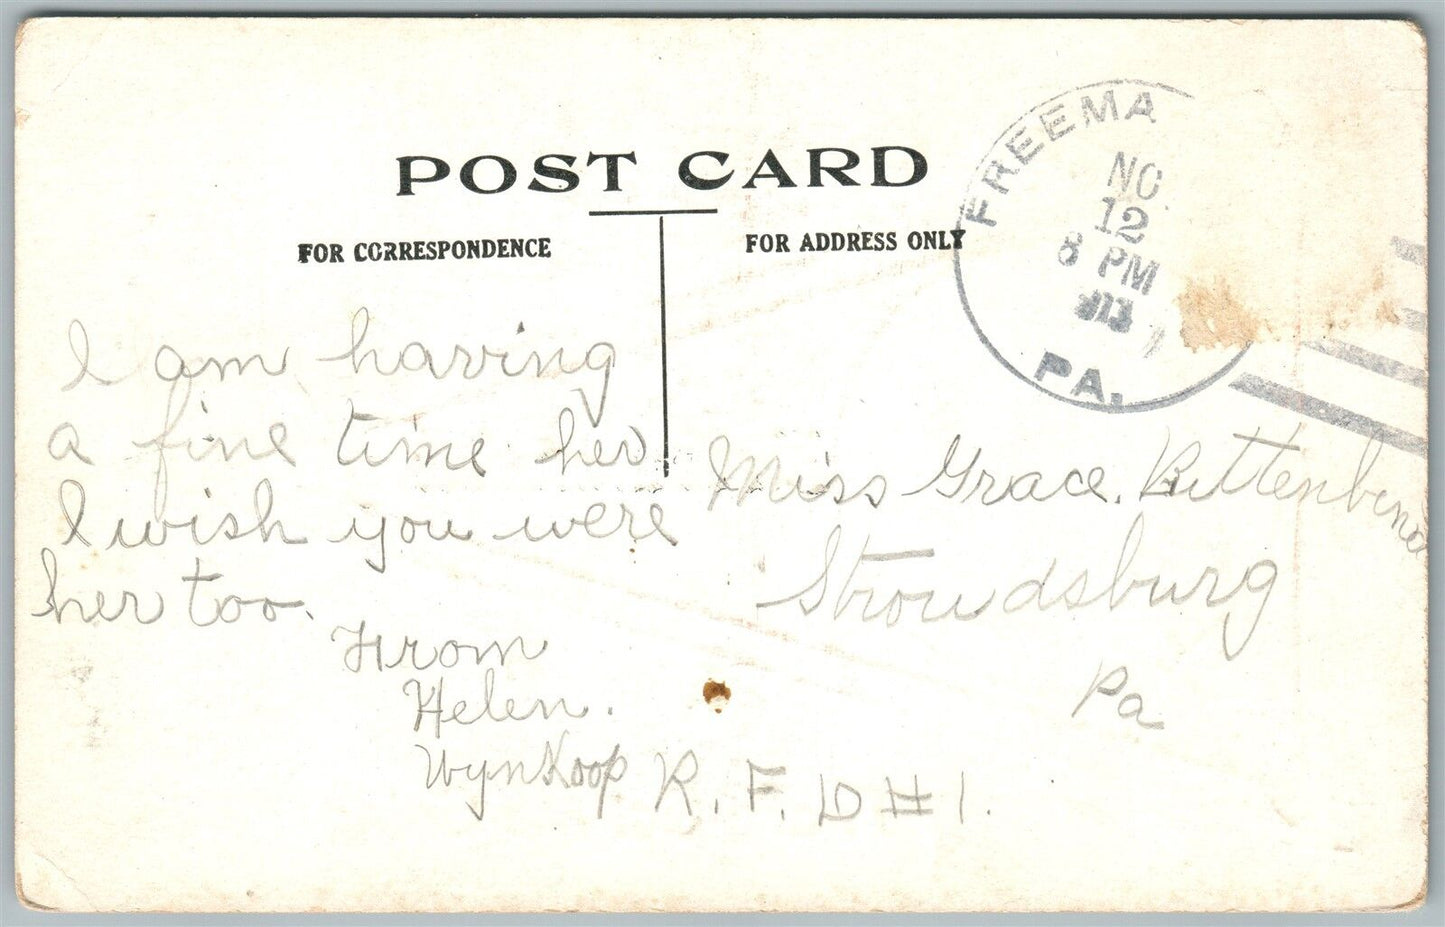 POST CARD
FOR CORRESPONDENCE
FOR ADDRESS ONLY
FREEMA
12
8 PM
PA.
I am having
a fine time her
I wish you were
her too.
From
Helen.
Wynkoop
Miss Grace. Rittenbend
Stroudsburg
Pa
R. F. D # 1.